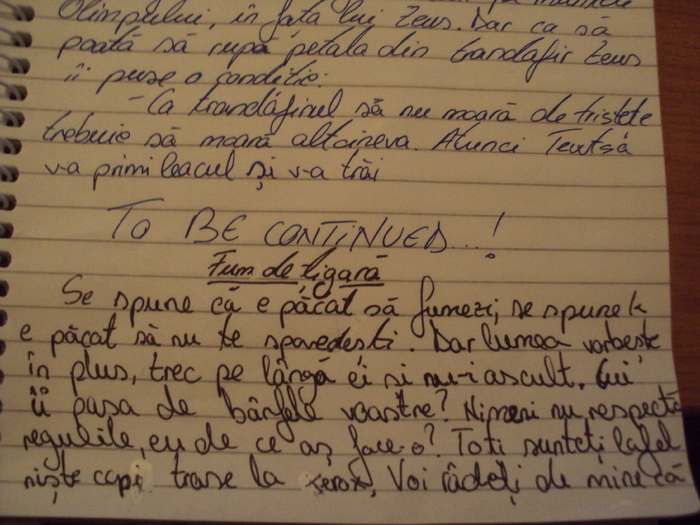 Olimpului, în fața lui Zeus. Dar ca să
poată să rupă petala din trandafir Zeus
îi puse o condiție:
-Ca trandafirul să nu moară de tristețe
trebuie să moară altcineva. Atunci
v-a primi leacul și v-a trăi
TO BE CONTINUED...!
Fum de țigară
Se spune că e păcat să fumezi, se spune k
e păcat să nu te spovedești. Dar lumea vorbește
în plus, trec pe lângă ei și nu-i ascult. Cui
îi pasa de bârfele voastre? Nimeni nu respectă
regulile, eu de ce aș face-o? Toti sunteți la fel
niște copi trase la xerox, Voi râdeți de mine că